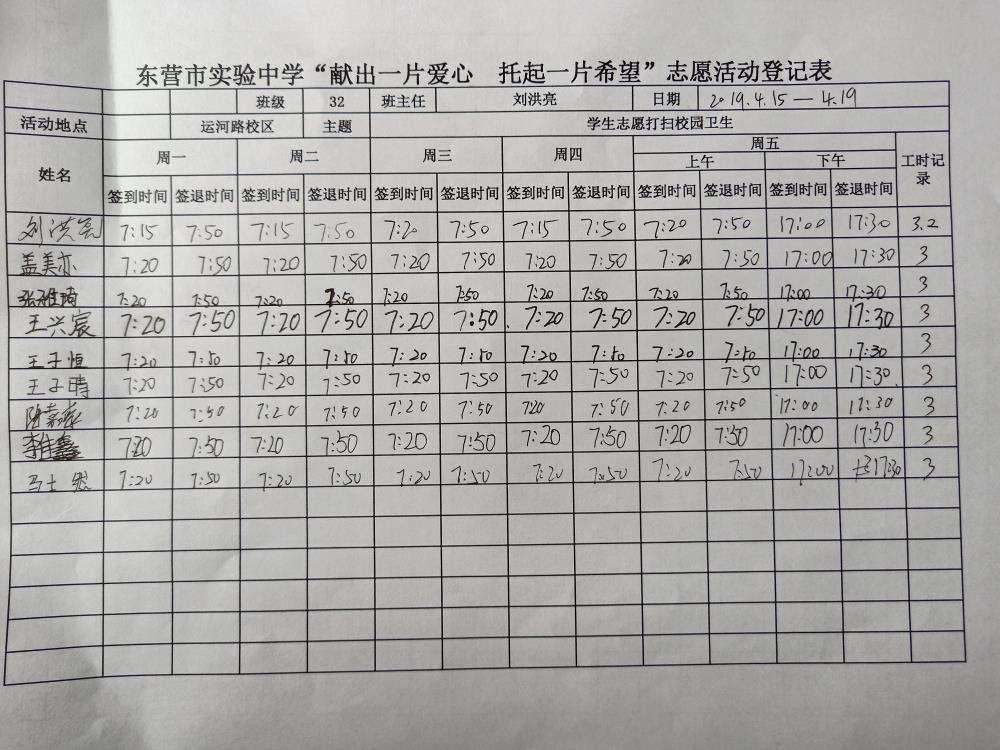 东营市实验中学“献出一片爱心 托起一片希望”志愿活动登记表
班级 32 班主任 刘洪亮 日期 2019.4.15—4.19
活动地点 运河路校区 主题 学生志愿打扫校园卫生
姓名 周一 周二 周三 周四 周五 工时记录
上午 下午
签到时间 签退时间 签到时间 签退时间 签到时间 签退时间 签到时间 签退时间 签到时间 签退时间 签到时间 签退时间
刘洪 7:15 7:50 7:15 7:50 7:20 7:50 7:15 7:50 7:20 7:50 17:00 17:30 3.2
盖美亦 7:20 7:50 7:20 7:50 7:20 7:50 7:20 7:50 7:20 7:50 17:00 17:30 3
张雅琦 7:20 7:50 7:20 7:50 7:20 7:50 7:20 7:50 7:20 7:50 17:00 17:30 3
王兴宸 7:20 7:50 7:20 7:50 7:20 7:50. 7:20 7:50 7:20 7:50 17:00 17:30 3
王子恒 7:20 7:50 7:20 7:50 7:20 7:50 7:20 7:50 7:20 7:50 17:00 17:30 3
王子晴 7:20 7:50 7:20 7:50 7:20 7:50 7:20 7:50 7:20 7:50 17:00 17:30. 3
嘉 7:20 7:50 7:20 7:50 7:20 7:50 7:20 7:50 7:20 7:50 17:00 17:30 3
李佳鑫 7:20 7:50 7:20 7:50 7:20 7:50 7:20 7:50 7:20 7:50 17:00 17:30 3
马士 7:20 7:50 7:20 7:50 7:20 7:50 7:20 7:50 7:20 7:50 17:00 17:30 3